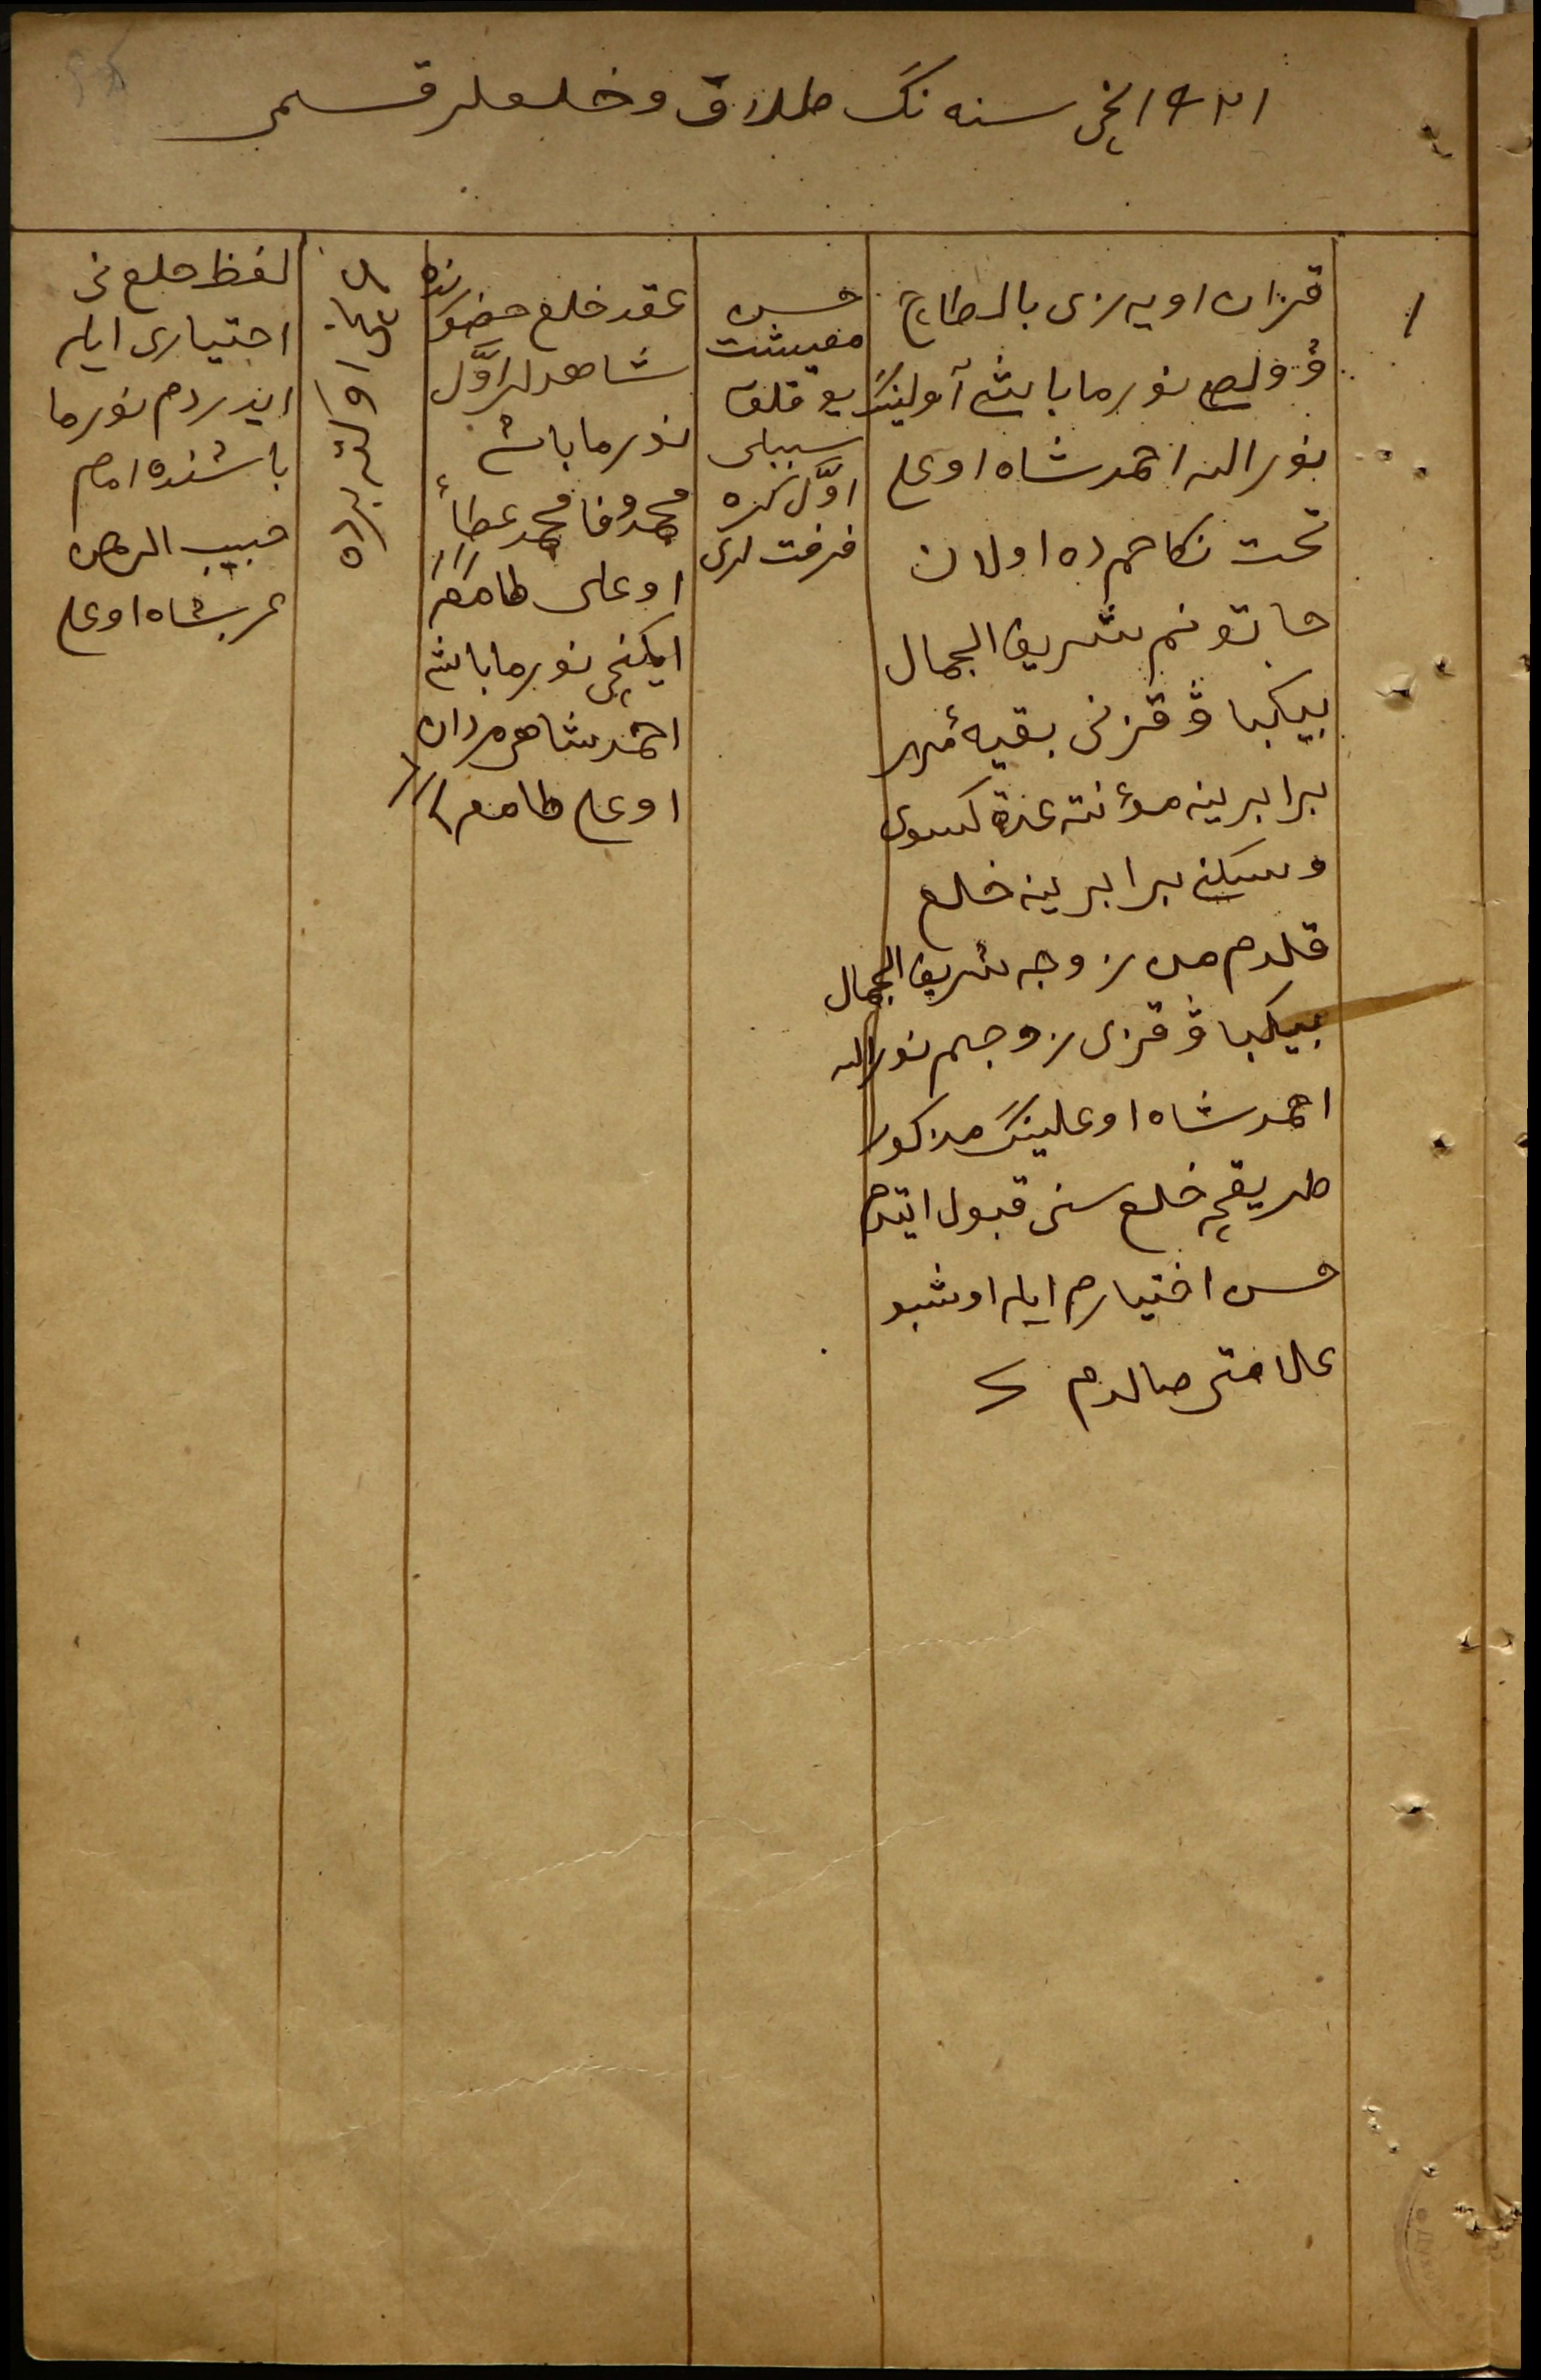 ١٩٢١ انچی سنه نڭ طلاق و خلعلر قسمی
١
قزان اویه زی بالطاچ
ڤولص نورما باشی آولینڭ
نورالله احمدشاه اوغلی
تحت نکاحمده اولان
خاتونم شریف الجمال
بیکباو قزنی بقیهٔ مهر
برابرینه مؤنته عدة کسوه
وسکنی برابرینه خلع
قلدم من زوجه شریف الجمال
بیکباو قزی زوجم نورالله
احمدشاه اوغلینڭ مذکور
طریقچه خلع سنی قبول ایتدم
حسن اختیارم ایله اوشبو
علامتم صالدم
حسن
معیشت
یوقلق
سببلی
اوّل کره
فرقت لری
عقد خلع حضورنده
شاهدلر اوّل
نورما باش
محمدوفا محمدعطاء
اوغلی طامغام
ایکنچی نورما باشی
احمدشاه مردان
اوغلی طامغام
لفظ خلع نی
اختیاری ایله
ایدردم نورما
باشنده امام
حبیب الرحمن
عربشاه اوغلی